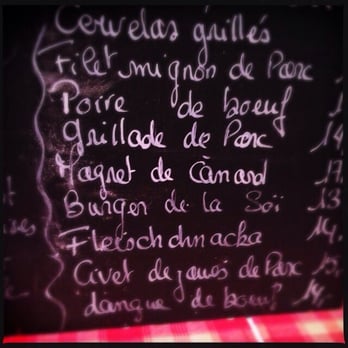 Cervelas grillés
Filet mignon de Porc
Poire de boeuf
Grillade de Porc 14
Magret de Canard 17
Burger de la Soï 13
Fleischchnacka 14
Civet de joues de Porc 15
Langue de boeuf 14